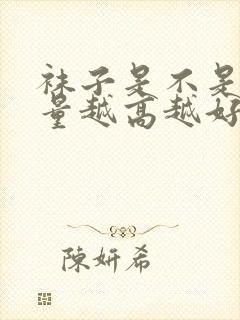 袜子是不是
量越高越好
陳妍希